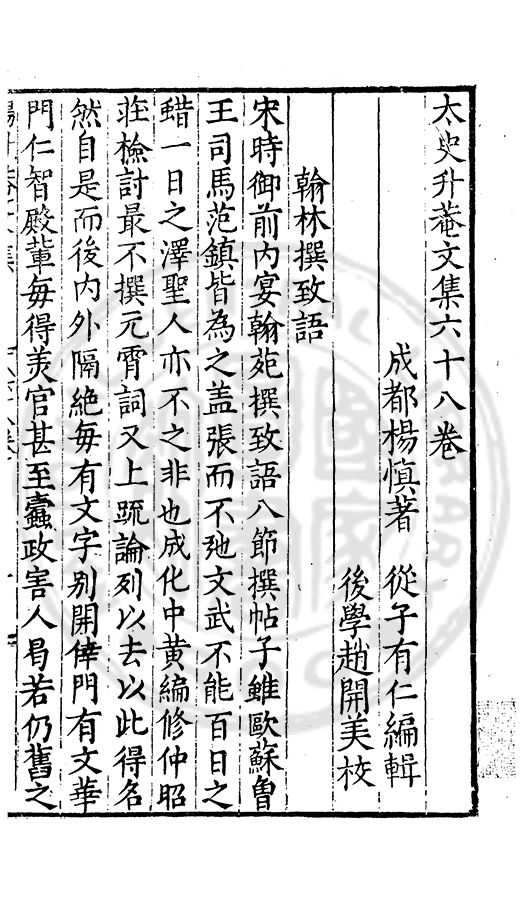 太史升菴文集六十八卷
成都楊慎著 從子有仁編輯
後學趙開美校
翰林撰致語
宋時御前內宴翰苑撰致語八節撰帖子雖歐蘇曾
王司馬范鎮皆為之盖張而不弛文武不能百日之
蜡一日之澤聖人亦不之非也成化中黄編修仲昭
莊檢討最不撰元宵詞又上䟽論列以去以此得名
然自是而後内外隔絶毎有文字别開倖門有文華
門仁智殿軰毎得美官甚至蠧政害人曷若仍舊之